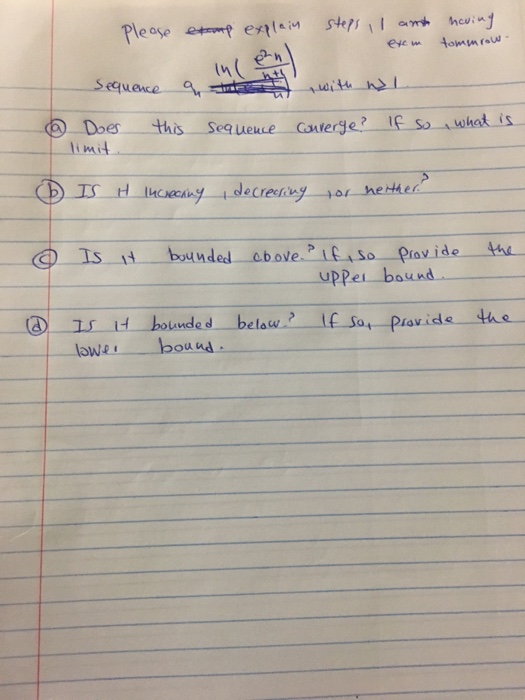 Please explain steps, I am having
exam tommrow.
Sequence aₙ ln( e²n / n+1 ) , with n≥1
(a) Does this sequence converge? If so, what is
limit.
(b) Is it increasing, decreasing, or neither?
(c) Is it bounded above? If, so provide the
upper bound.
(d) Is it bounded below? If so, provide the
lower bound.